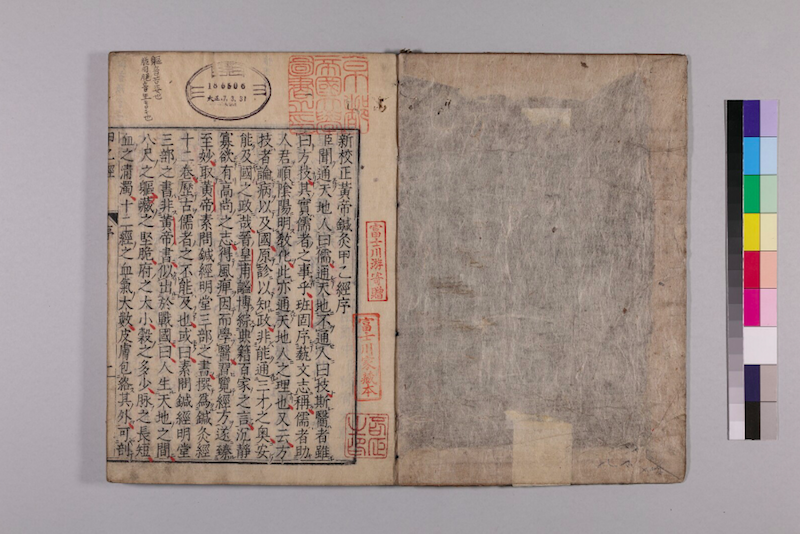 新校正黃帝鍼灸甲乙經序
臣聞通天地人曰儒通天地不通人曰技斯醫者雖
曰方技其實儒者之事乎班固序藝文志稱儒者助
人君順陰陽明教化此亦通天地人之理也又云方
技者論病以及國原診以知政非能通三才之奧安
能及國之政哉晉皇甫謐博綜典籍百家之言沈靜
寡欲有高尚之志得風痺因而學醫習覽經方遂臻
至妙取黃帝素問鍼經明堂三部之書撰為鍼灸經
十二卷歷古儒者之不能及也或曰素問鍼經明堂
三部之書非黃帝書似出於戰國曰人生天地之間
八尺之軀藏之堅脆府之大小穀之多少脉之長短
血之清濁十二經之血氣大數皮膚包絡其外可剖
甲乙經 序
186806
富士川游寄贈
富士川家藏本